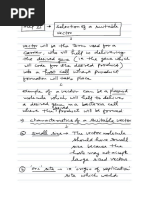 Step 2: → Selection of a suitable
vector
↓
vector will be the term used for a
carrier, who will help in delivering
the desired gene (ie the gene which
will give for the desired product)
into a host cell where product
formation will take place.
↓
example of a vector can be a plasmid
molecule which will help to deliver
a desired gene in a bacterial cell
where the product will be formed
↓
characteristics of a suitable vector
① small size → The vector molecule
should have small
size because the
host may not accept
large sized vector
② 'ori' site → ie 'origin of replication'
site which would